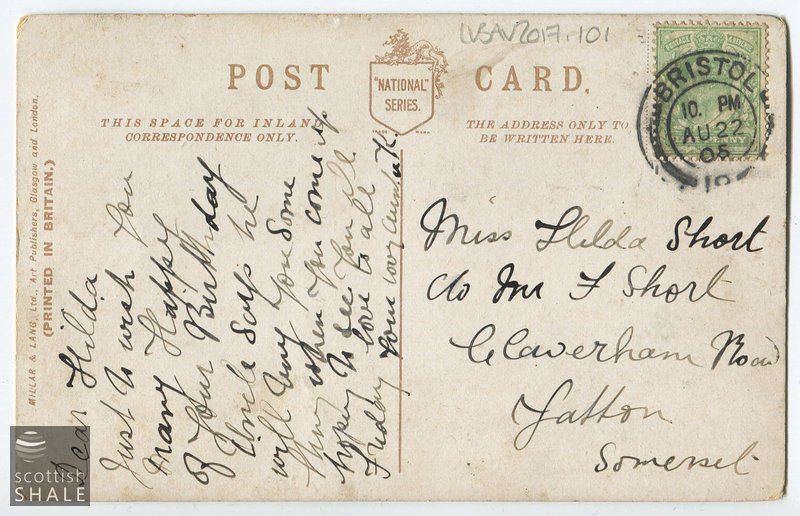 LVSAV2017.101
POST CARD.
"NATIONAL"
SERIES.
TRADE MARK
THIS SPACE FOR INLAND
CORRESPONDENCE ONLY.
THE ADDRESS ONLY TO
BE WRITTEN HERE.
BRISTOL
10. PM
AU 22
05
MILLAR & LANG, Ltd., Art Publishers, Glasgow and London.
(PRINTED IN BRITAIN.)
Dear Hilda
Just to wish You
Many Happy
of Your Birthday
Uncle Says he
will buy You Some
thing when You come up
hoping to see You all
Friday love to all
Your lovg Aunt K.
Miss Hilda Short
c/o Mr F Short
Claverham Road
Yatton
Somerset
scottish
SHALE